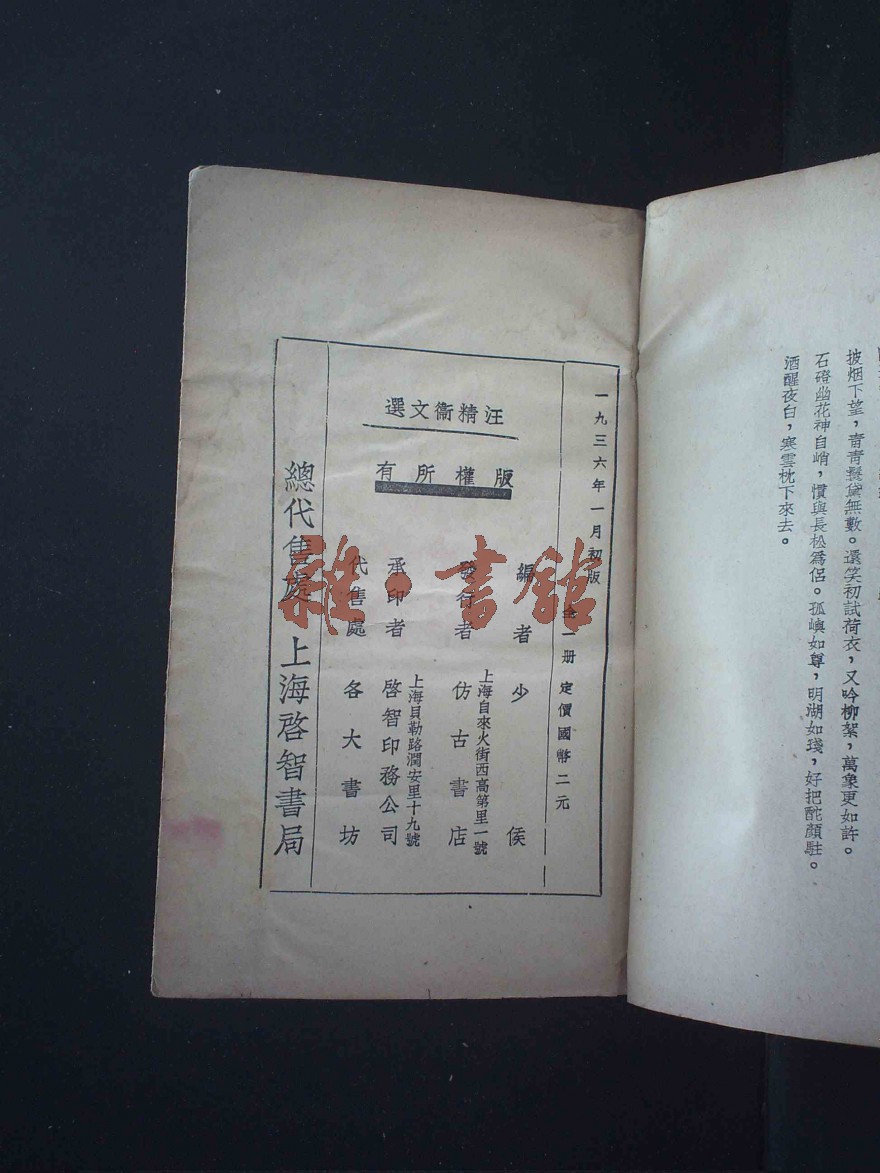 披烟下望，青青鬟黛無數。還笑初試荷衣，又吟柳絮，萬象更如許。
石磴幽花神自峭，慣與長松爲侶。孤嶼如尊，明湖如琖，好把酡顏駐。
酒醒夜白，寒雲枕下來去。
一九三六年一月初版 全一册 定價國幣二元
汪精衞文選
版權所有
編者 少侯
發行者 仿古書店
上海自來火街西高第里一號
承印者 啓智印務公司
上海貝勒路潤安里十九號
代售處 各大書坊
總代售處 上海啓智書局
雜·書館